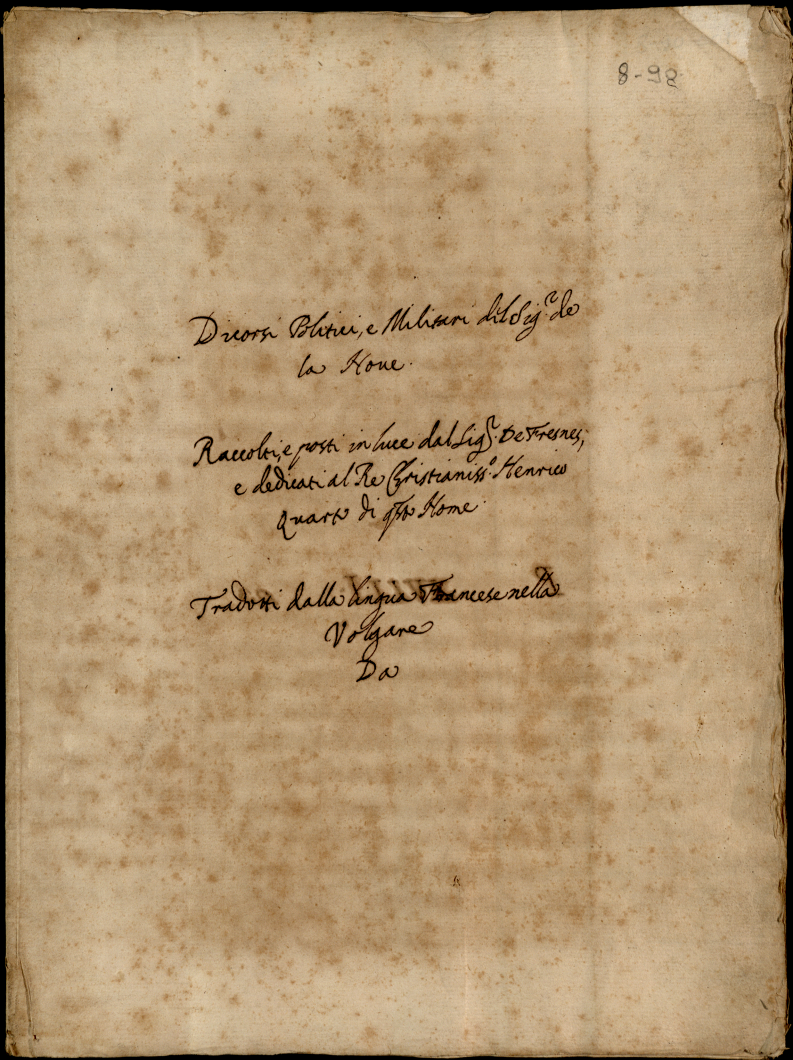 8-98
Dicorsi Politici, e Militari del Sig.r de
la Noue.
Raccolti, e posti in luce dal Sig.r De Fresnes,
e dedicati al Re Christianiss.o Henrico
Quarto di qsto Nome.
Tradotti dalla lingua Francese nella
Volgare
Da